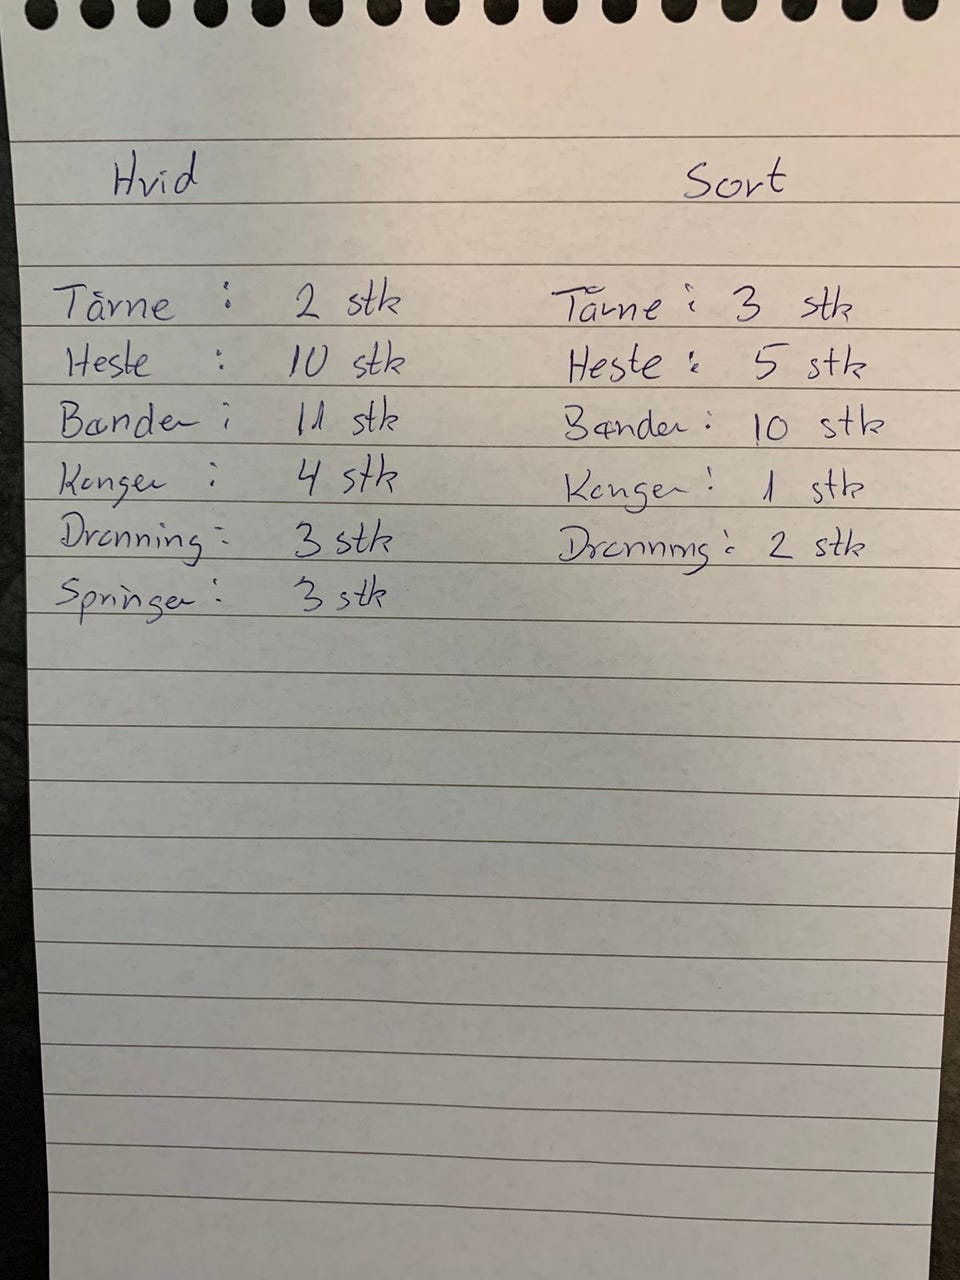 Hvid Sort
Tårne : 2 stk Tårne : 3 stk
Heste : 10 stk Heste : 5 stk
Bønder : 11 stk Bønder : 10 stk
Konger : 4 stk Konger : 1 stk
Dronning : 3 stk Dronning : 2 stk
Springer : 3 stk